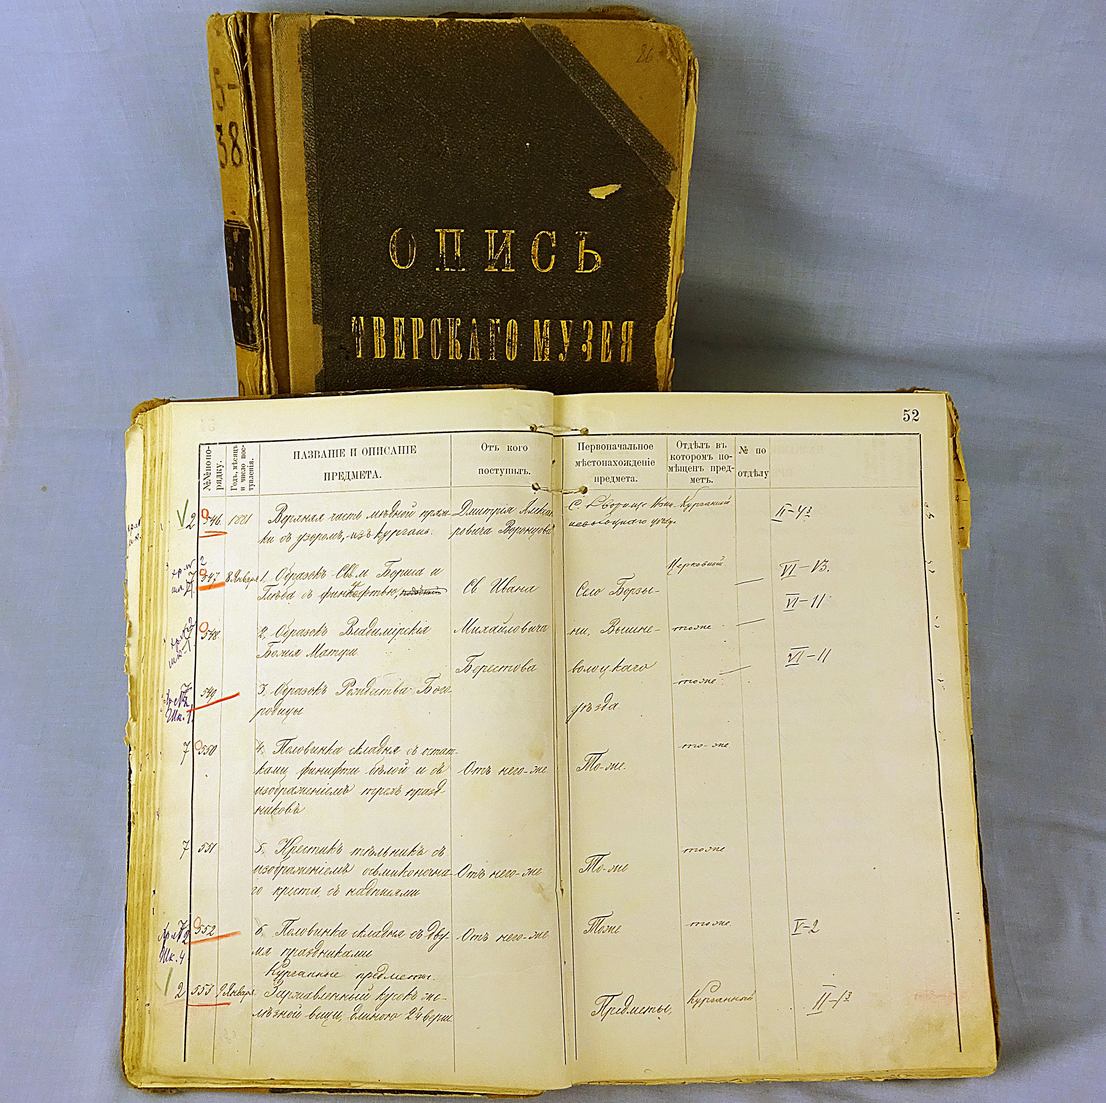 26
5-
38
ОПИСЬ
ТВЕРСКАГО МУЗЕЯ
52
№№ по по-
рядку.
Годъ, мѣсяцъ
и число пос-
тупленія.
НАЗВАНІЕ И ОПИСАНІЕ
ПРЕДМЕТА.
Отъ кого
поступилъ.
Первоначальное
мѣстонахожденіе
предмета.
Отдѣлъ въ
которомъ по-
мѣщенъ пред-
метъ.
№ по
отдѣлу
2 546 1881 Верхняя часть мѣдной пряж-
ки съ узоромъ, изъ кургана.
Дмитрія Алекс
ровича Воронцова
Курганный
II-43
547 8 Января 1. Образокъ Св-м Бориса и
Глѣба съ финифтью,
Св Ивана
Село Борзы-
Церковный
VI-13.
VI-11
548 2. Образокъ Владимірскія
Божія Матери
Михайловича
Берестова
ни, Вышне-
волоцкаго
тоже
VI-11
549 3. Образокъ Рождества Бого
родицы
уѣзда
тоже
7 550 4. Половинка складня съ остат-
ками финифти бѣлой и съ
изображеніемъ трехъ празд-
никовъ
Отъ него-же
То-же.
то-же
7 551 5. Крестикъ тѣльникъ съ
изображеніемъ осьмиконечна-
го креста, съ надписями
Отъ него-же
То-же
тоже
552 6. Половинка складня съ дву-
мя праздниками
Отъ него-же
Тоже
тоже
V-2
Шк. 4
Курганные предметы.
2 553 9 Января Заржавленный кусокъ же-
лѣзной вещи, длиною 2 1/4 верш
Предметы,
Курганный
II-43